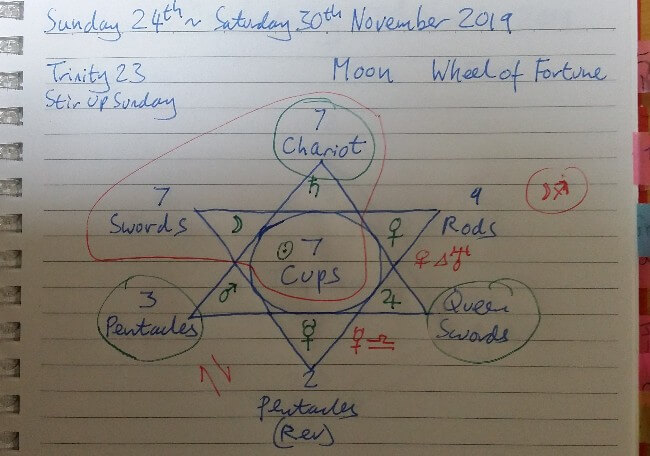 Sunday 24th ~ Saturday 30th November 2019
Trinity 23 Moon Wheel of Fortune
Stir Up Sunday
7
Chariot
♄
7
Swords
☽
♀
9
Rods
☉ 7
Cups
3
Pentacles
♂
♃
Queen
Swords
☿
☿ ♎
2
Pentacles
(Rev)